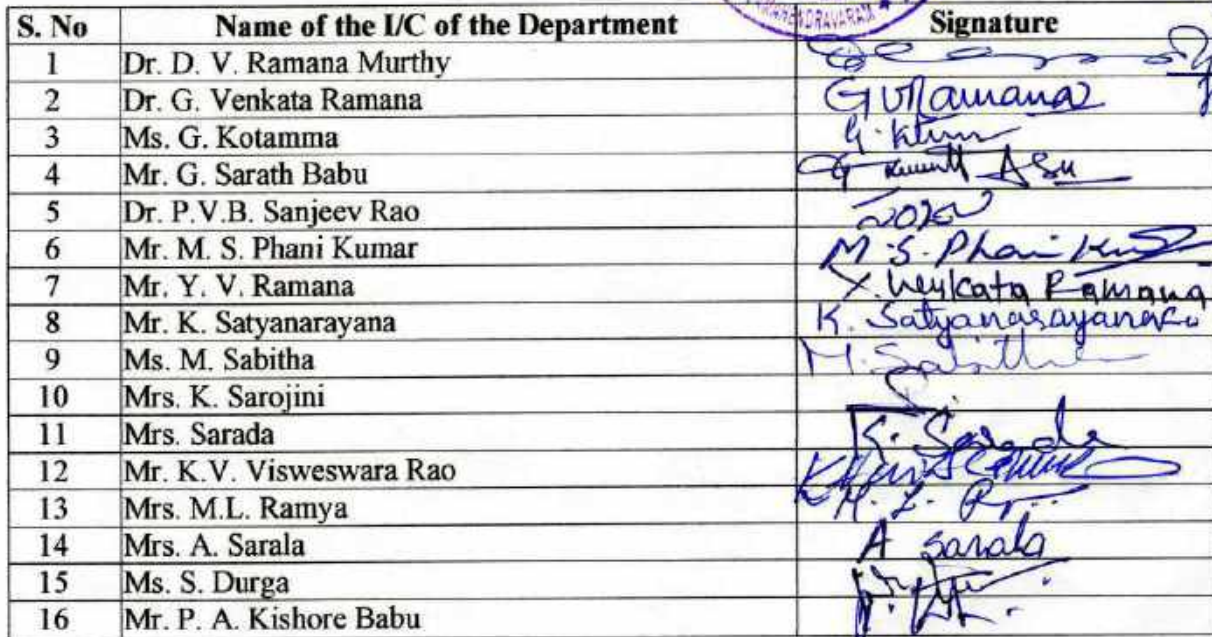 MAHENDRAVARAM
S. No Name of the I/C of the Department Signature
1 Dr. D. V. Ramana Murthy
2 Dr. G. Venkata Ramana GVRamana
3 Ms. G. Kotamma G.
4 Mr. G. Sarath Babu
5 Dr. P.V.B. Sanjeev Rao
6 Mr. M. S. Phani Kumar M. S. Phani
7 Mr. Y. V. Ramana Y. Venkata Ramana
8 Mr. K. Satyanarayana K. Satyanarayana
9 Ms. M. Sabitha M. Sabitha
10 Mrs. K. Sarojini
11 Mrs. Sarada K. Sarada
12 Mr. K.V. Visweswara Rao
13 Mrs. M.L. Ramya M. L. R
14 Mrs. A. Sarala A Sarala
15 Ms. S. Durga
16 Mr. P. A. Kishore Babu